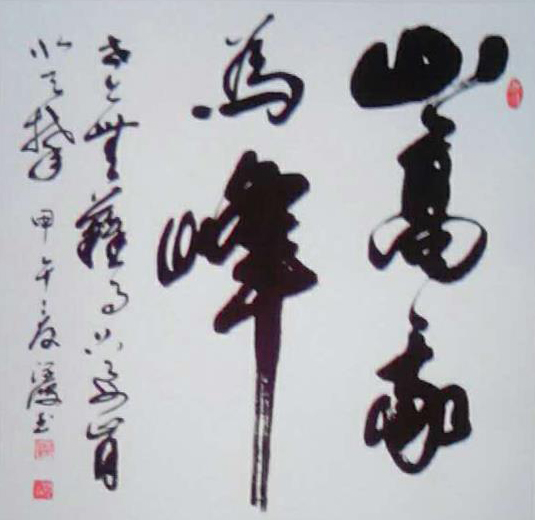 山高我
為峰
世上無難事只要肯
登攀 甲午夏